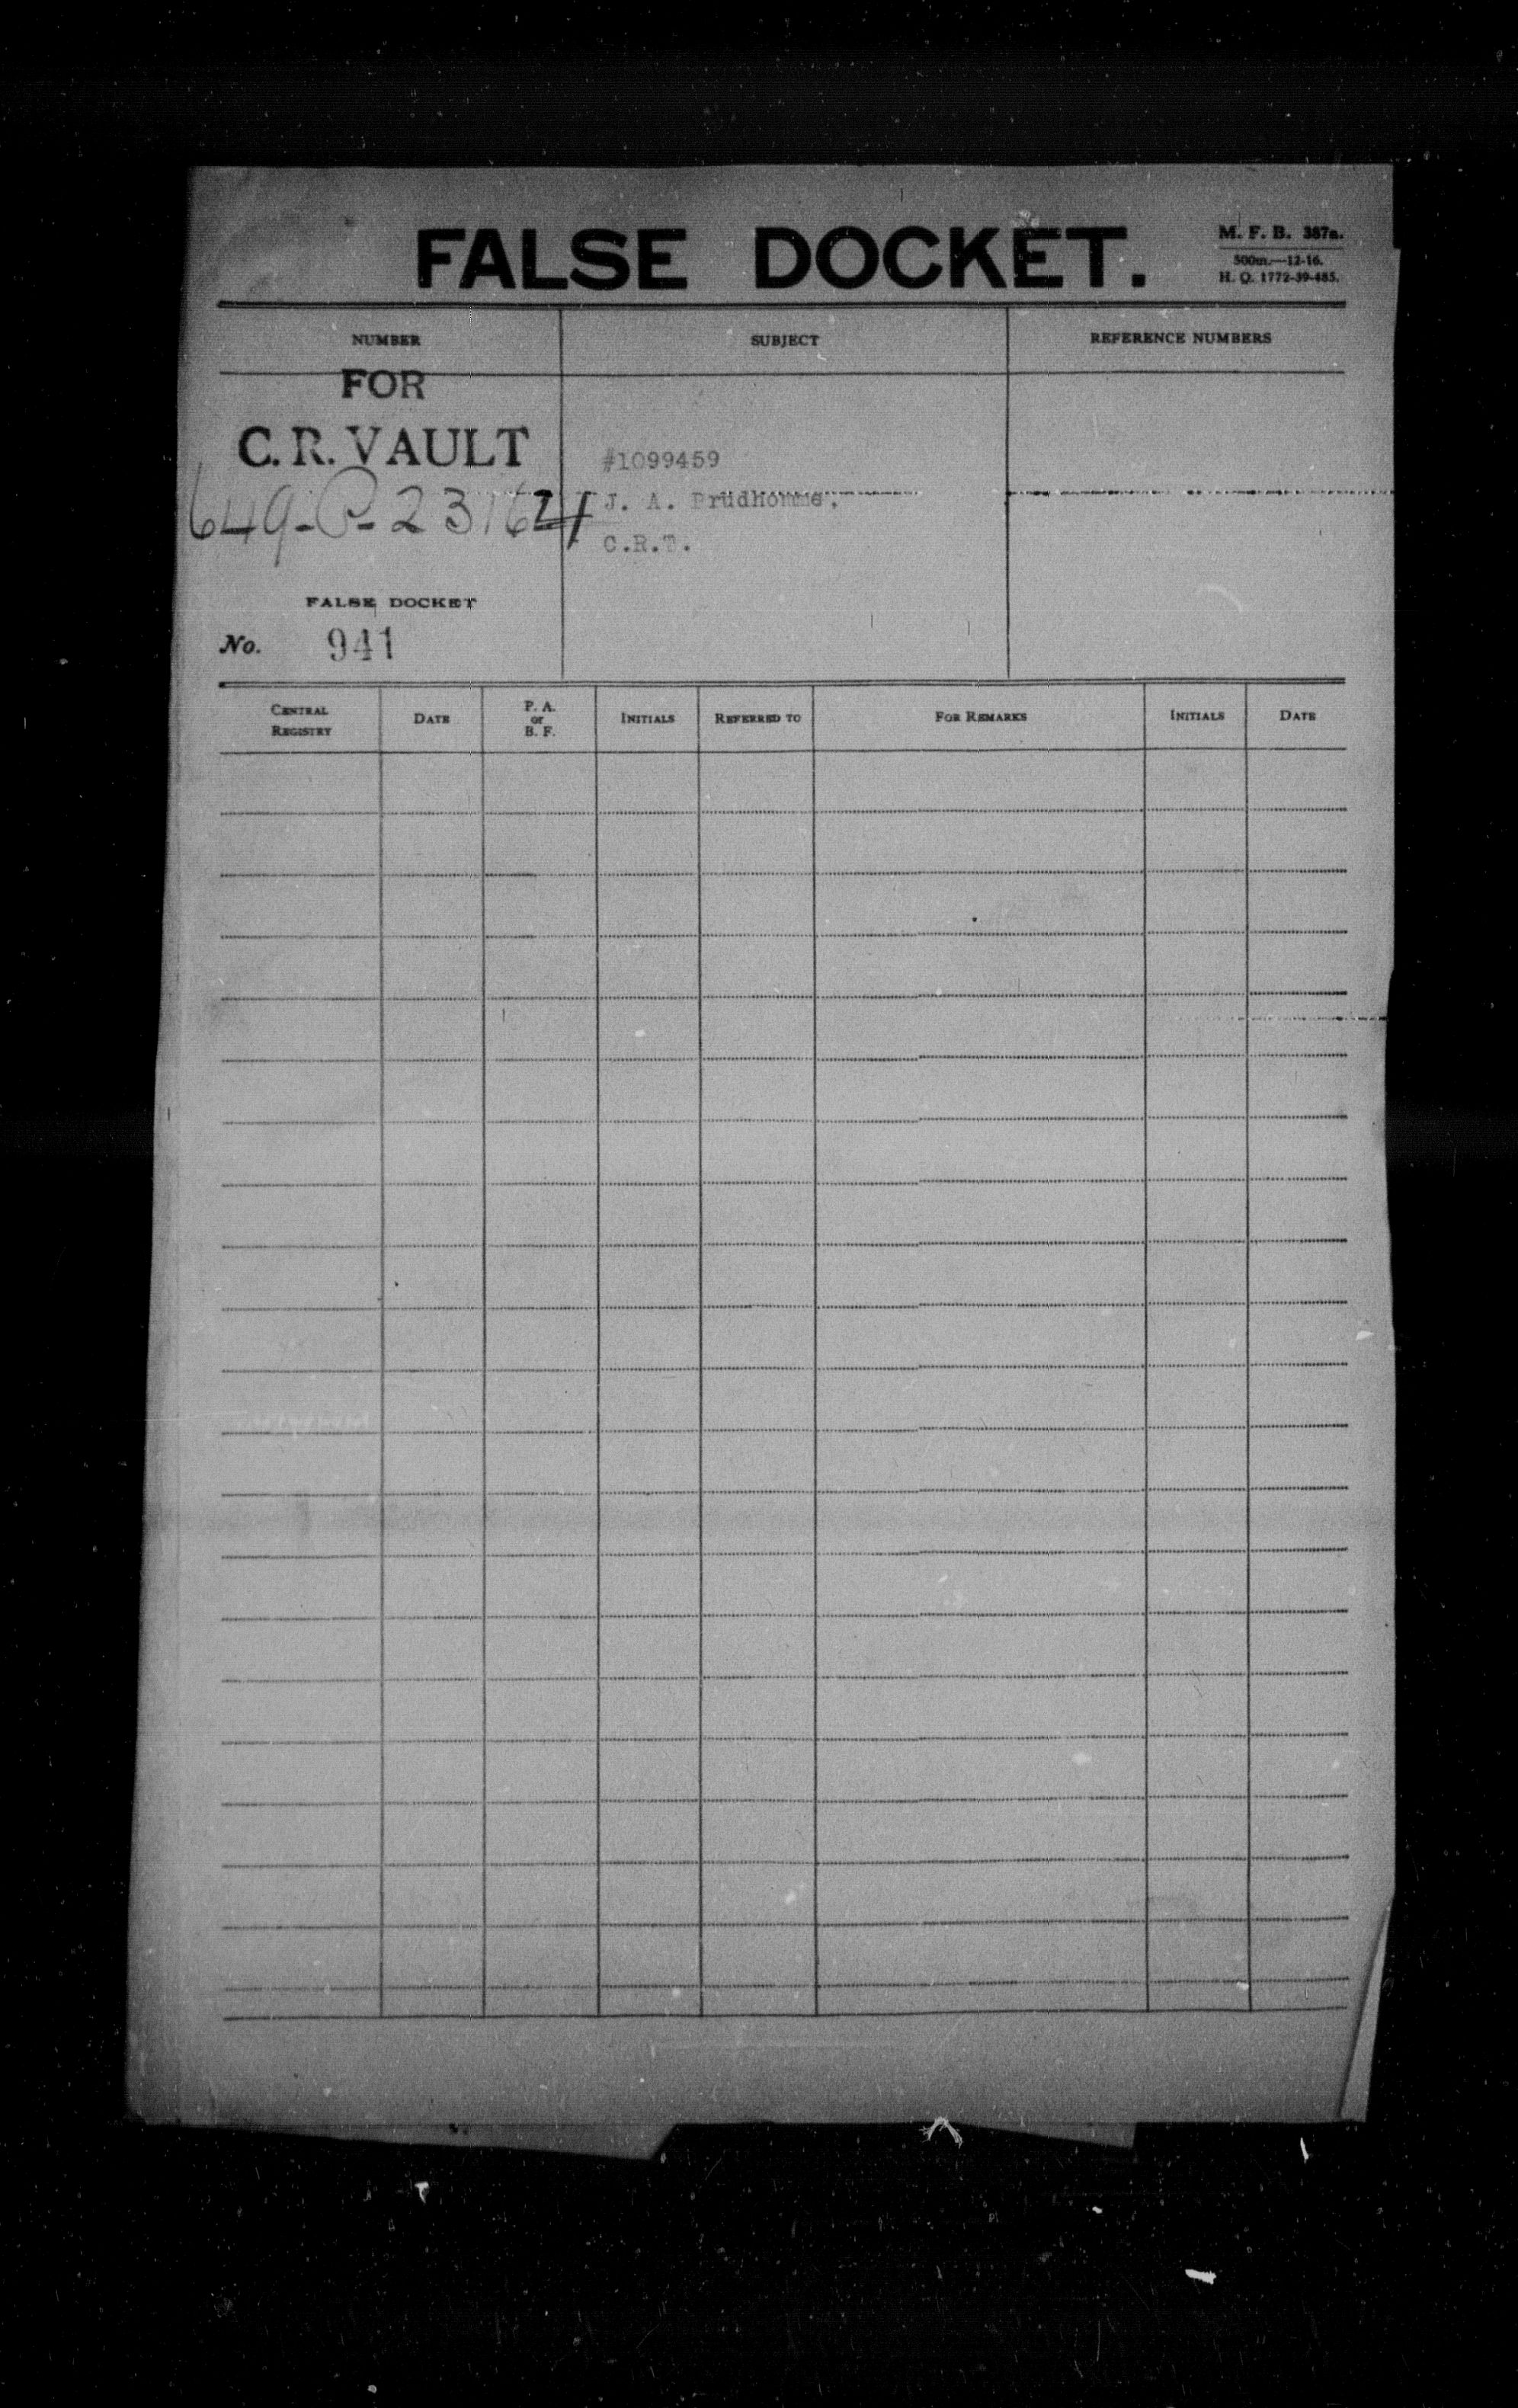 FALSE DOCKET.
M. F. B. 387a.
500m.—12-16.
H. Q. 1772-39-485.
NUMBER
SUBJECT
REFERENCE NUMBERS
FOR
C. R. VAULT
649-P-23162
#1099459
J. A. Prudhomme,
C.R.T.
FALSE DOCKET
No. 941
CENTRAL REGISTRY
DATE
P. A. or B. F.
INITIALS
REFERRED TO
FOR REMARKS
INITIALS
DATE